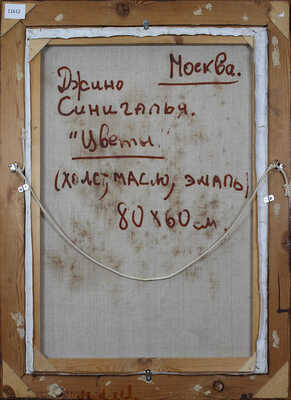 Москва.
Джино
Синигалья.
"Цветы"
(холст, масло, эмаль)
80х60 см.